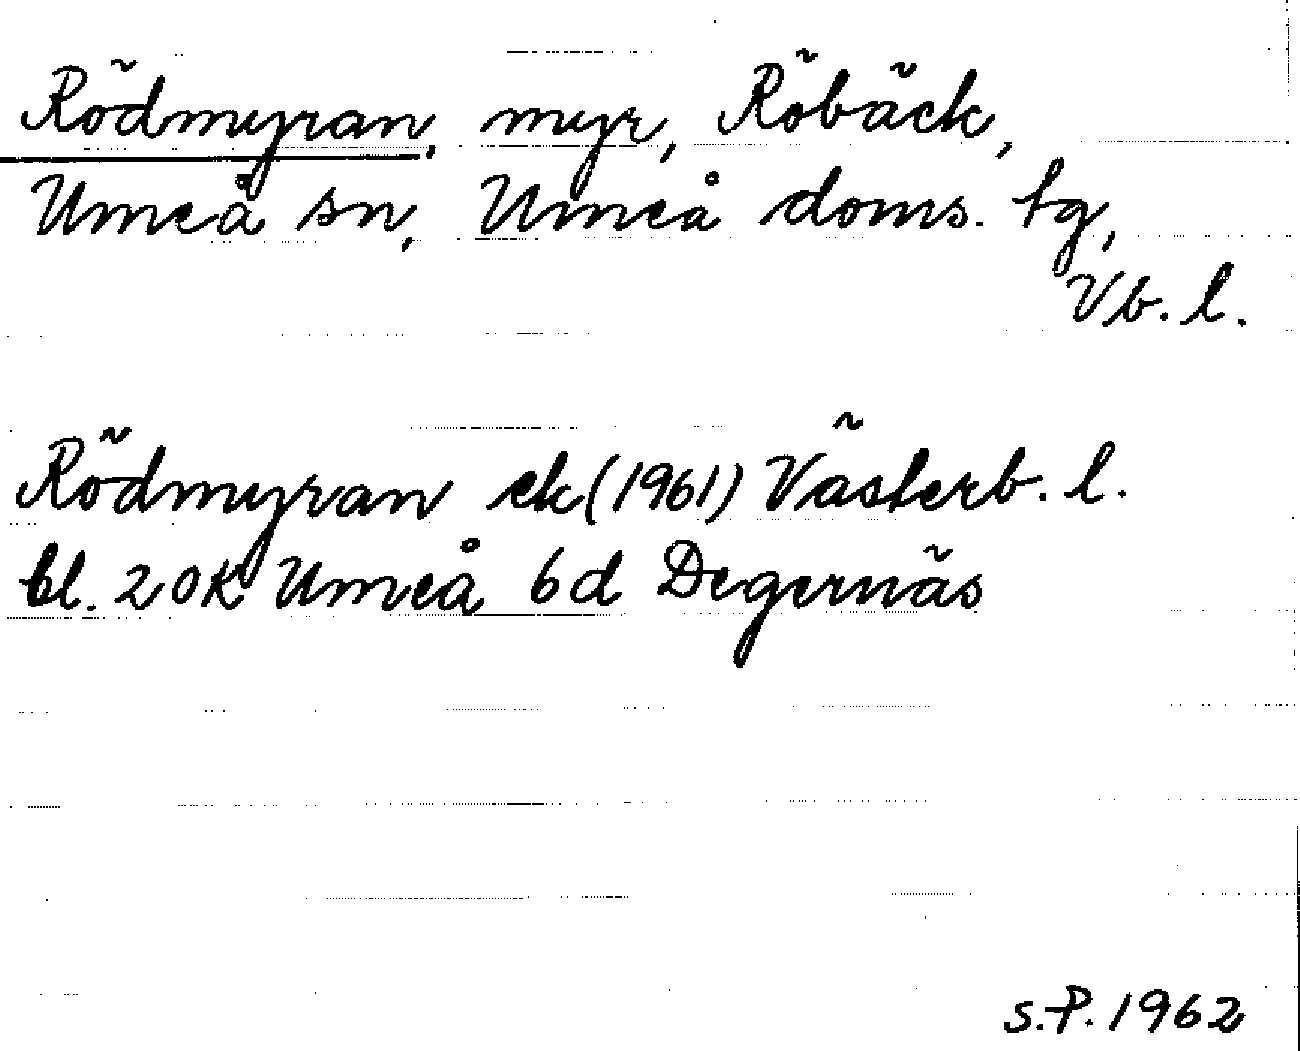 Rödmyran, myr, Röbäck,
Umeå sn, Umeå doms. tg,
Vb. l.
Rödmyran ek (1961) Västerb. l.
bl. 20K Umeå 6d Degernäs
S.P. 1962